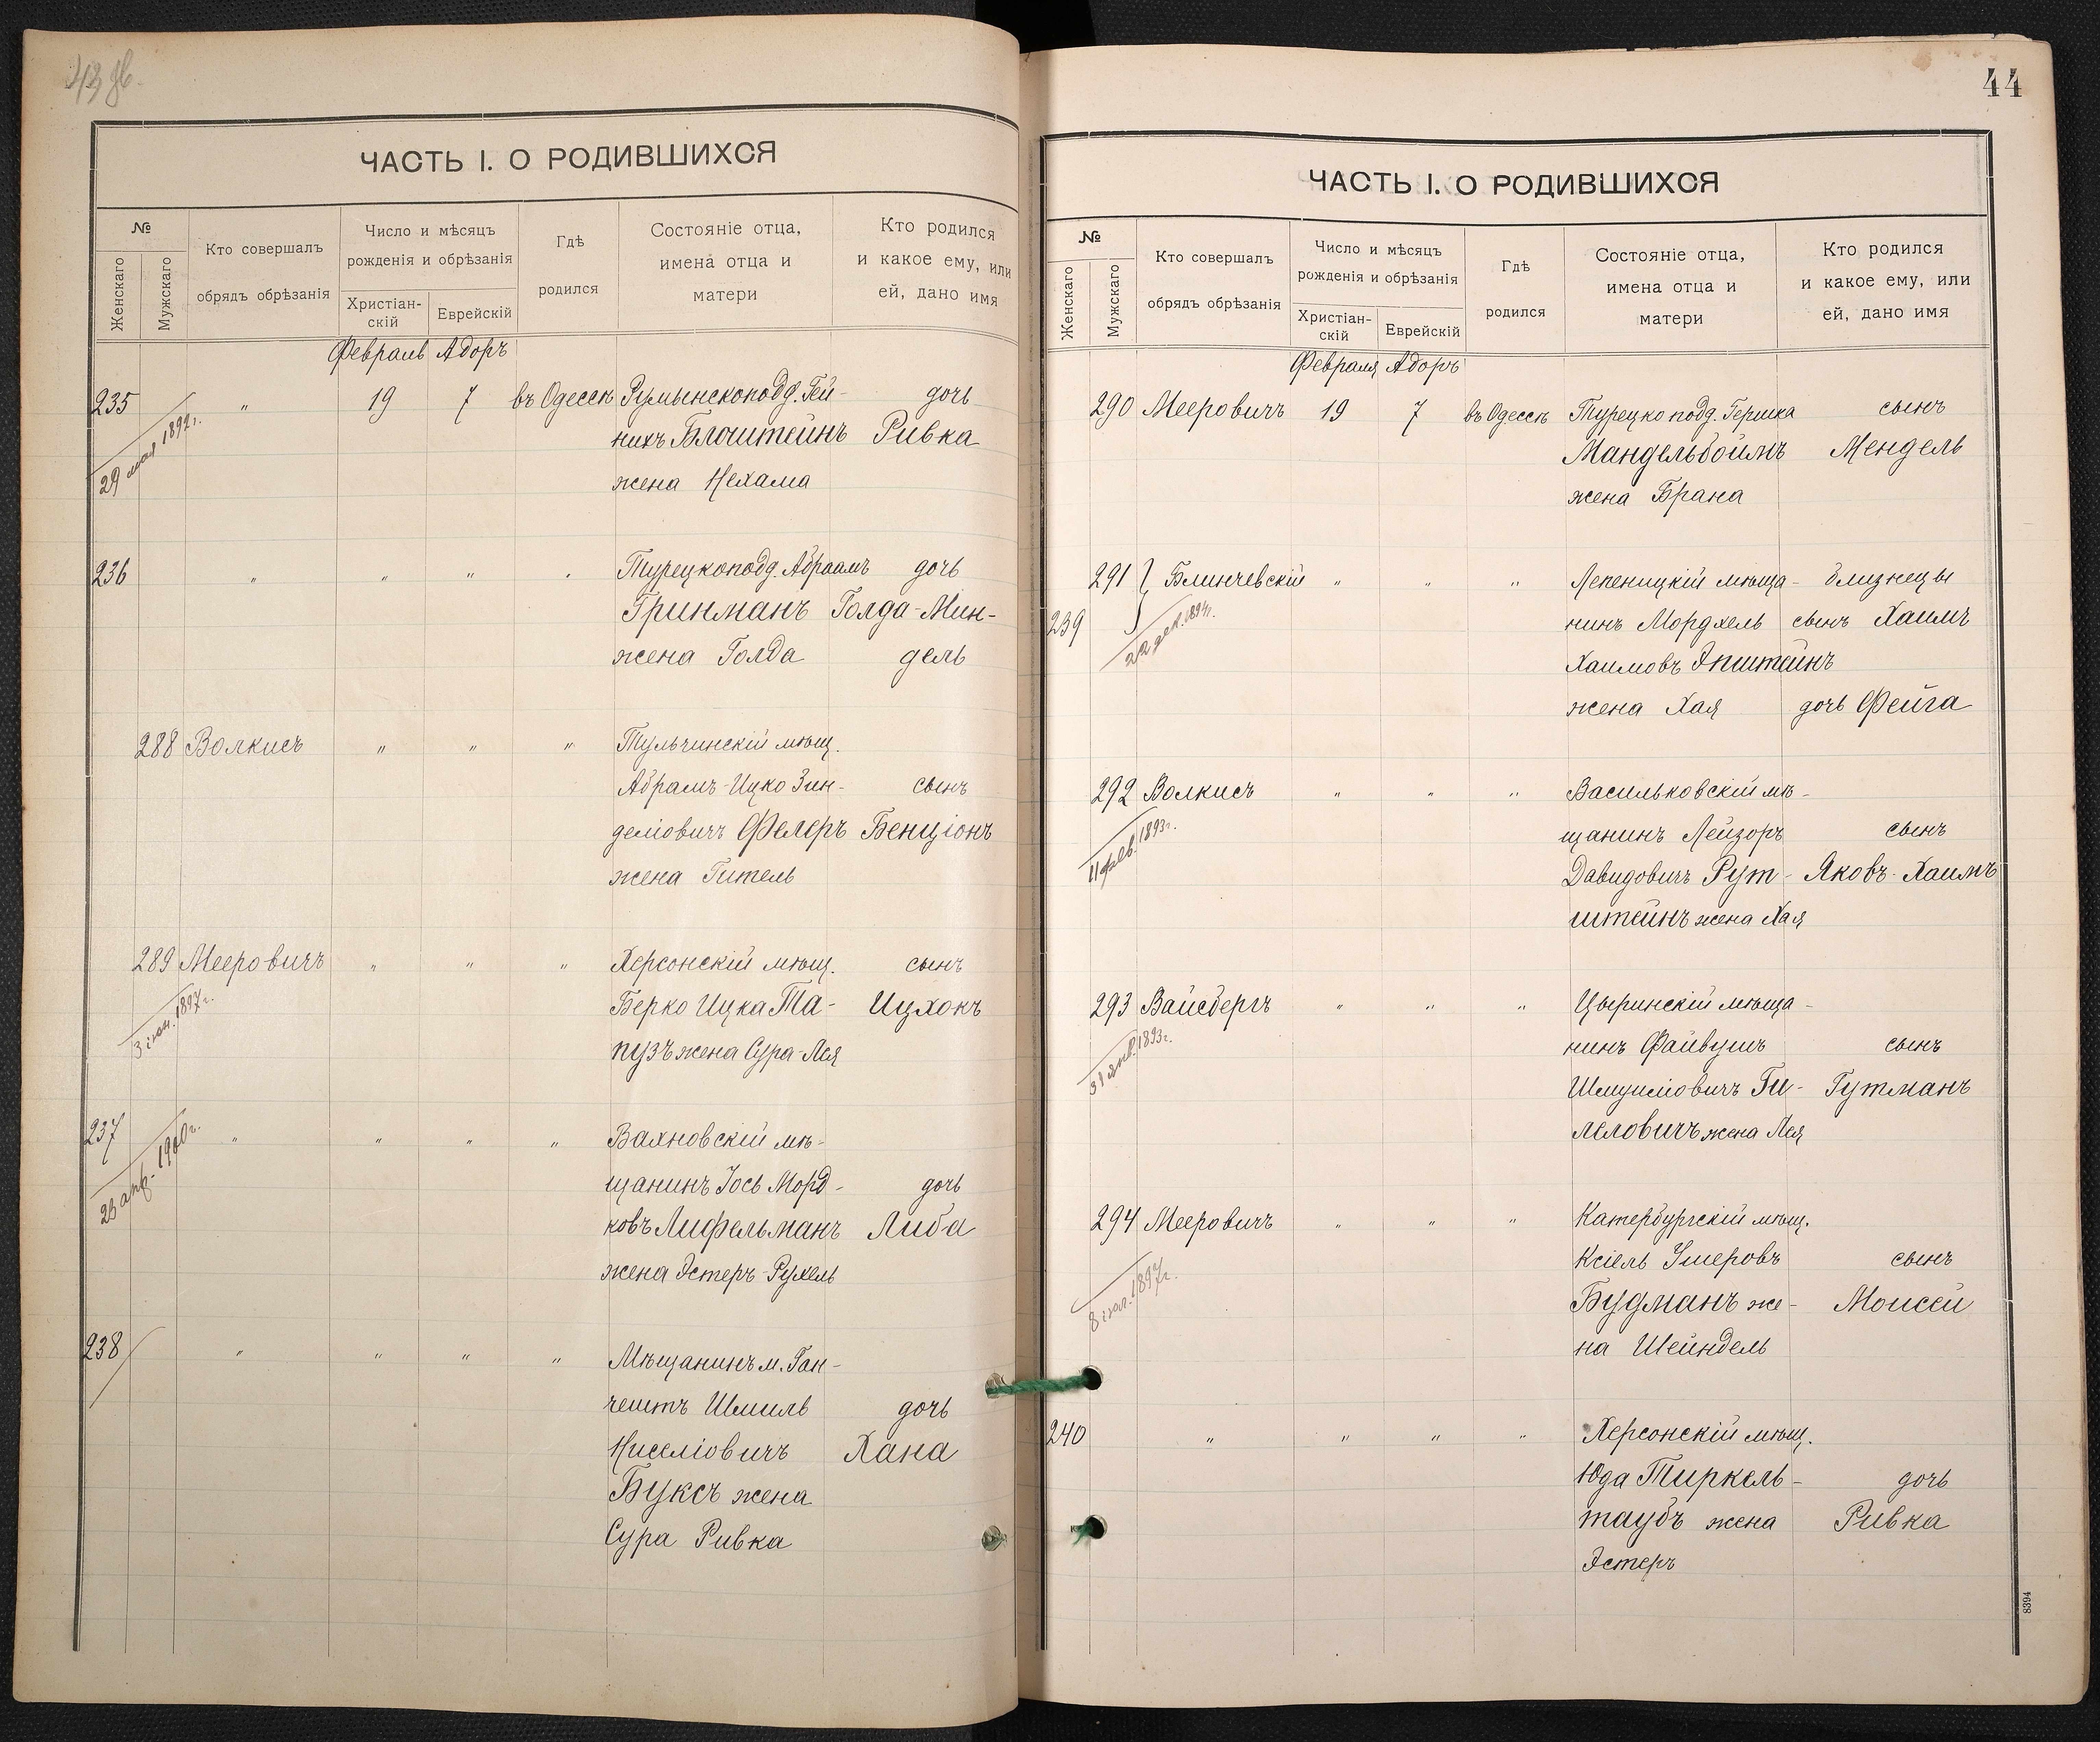 43 об.
ЧАСТЬ I. О РОДИВШИХСЯ
№
Женскаго
Мужскаго
Кто совершалъ
обрядъ обрѣзанія
Число и мѣсяцъ
рожденія и обрѣзанія
Христіан-
скій
Еврейскій
Гдѣ
родился
Состояніе отца,
имена отца и
матери
Кто родился
и какое ему, или
ей, дано имя
Февраль Адоръ
235 " 19 7 въ Одессѣ Румынскоподд. Гей- дочь
нихъ Блоштейнъ Ривка
29 мая 1892г.
жена Нехама
236 " " " " Турецкоподд. Абраамъ дочь
Гринманъ Голда-Мин-
жена Голда дель
288 Волкисъ " " " Тульчинскій мѣщ.
Абрамъ-Ицко Зин- сынъ
деліовичъ Фелеръ Бенціонъ
жена Гитель
289 Мееровичъ " " " Херсонскій мѣщ. сынъ
Берко Ицка Та- Ицхокъ
3 іюн. 1897г.
пузъ жена Сура-Лея
237 " " " " Вахновскій мѣ-
23 апр. 1900г.
щанинъ Іось Морд- дочь
ковъ Лифельманъ Либа
жена Эстеръ-Рухель
238 " " " " Мѣщанинъ м. Ган-
чештъ Шмиль дочь
Ниселіовичъ Хана
Буксъ жена
Сура Ривка
44
ЧАСТЬ I. О РОДИВШИХСЯ
№
Женскаго
Мужскаго
Кто совершалъ
обрядъ обрѣзанія
Число и мѣсяцъ
рожденія и обрѣзанія
Христіан-
скій
Еврейскій
Гдѣ
родился
Состояніе отца,
имена отца и
матери
Кто родился
и какое ему, или
ей, дано имя
Февраля Адоръ
290 Мееровичъ 19 7 въ Одессѣ Турецко подд. Гершка сынъ
Мандельбоймъ Мендель
жена Брана
291 } Блинчевскій " " " Лепеницкій мѣща- близнецы
239 нинъ Мордхель сынъ Хаимъ
22 дек. 1894г.
Хаимовъ Эпштейнъ
жена Хая дочь Фейга
292 Волкисъ " " " Васильковскій мѣ-
11 фев. 1893г.
щанинъ Лейзоръ сынъ
Давидовичъ Рут- Яковъ-Хаимъ
штейнъ жена Хая
293 Вайсбергъ " " " Цыринскій мѣща-
31 янв. 1893г.
нинъ Файвушъ сынъ
Шмуиліовичъ Ги- Гутманъ
леловичъ жена Лея
294 Мееровичъ " " " Катербургскій мѣщ.
8 іюл. 1897г.
Ксіель Ушеровъ сынъ
Будманъ же- Моисей
на Шейндель
240 " " " " Херсонскій мѣщ.
Юда Тиркель- дочь
таубъ жена Ривка
Эстеръ
8394